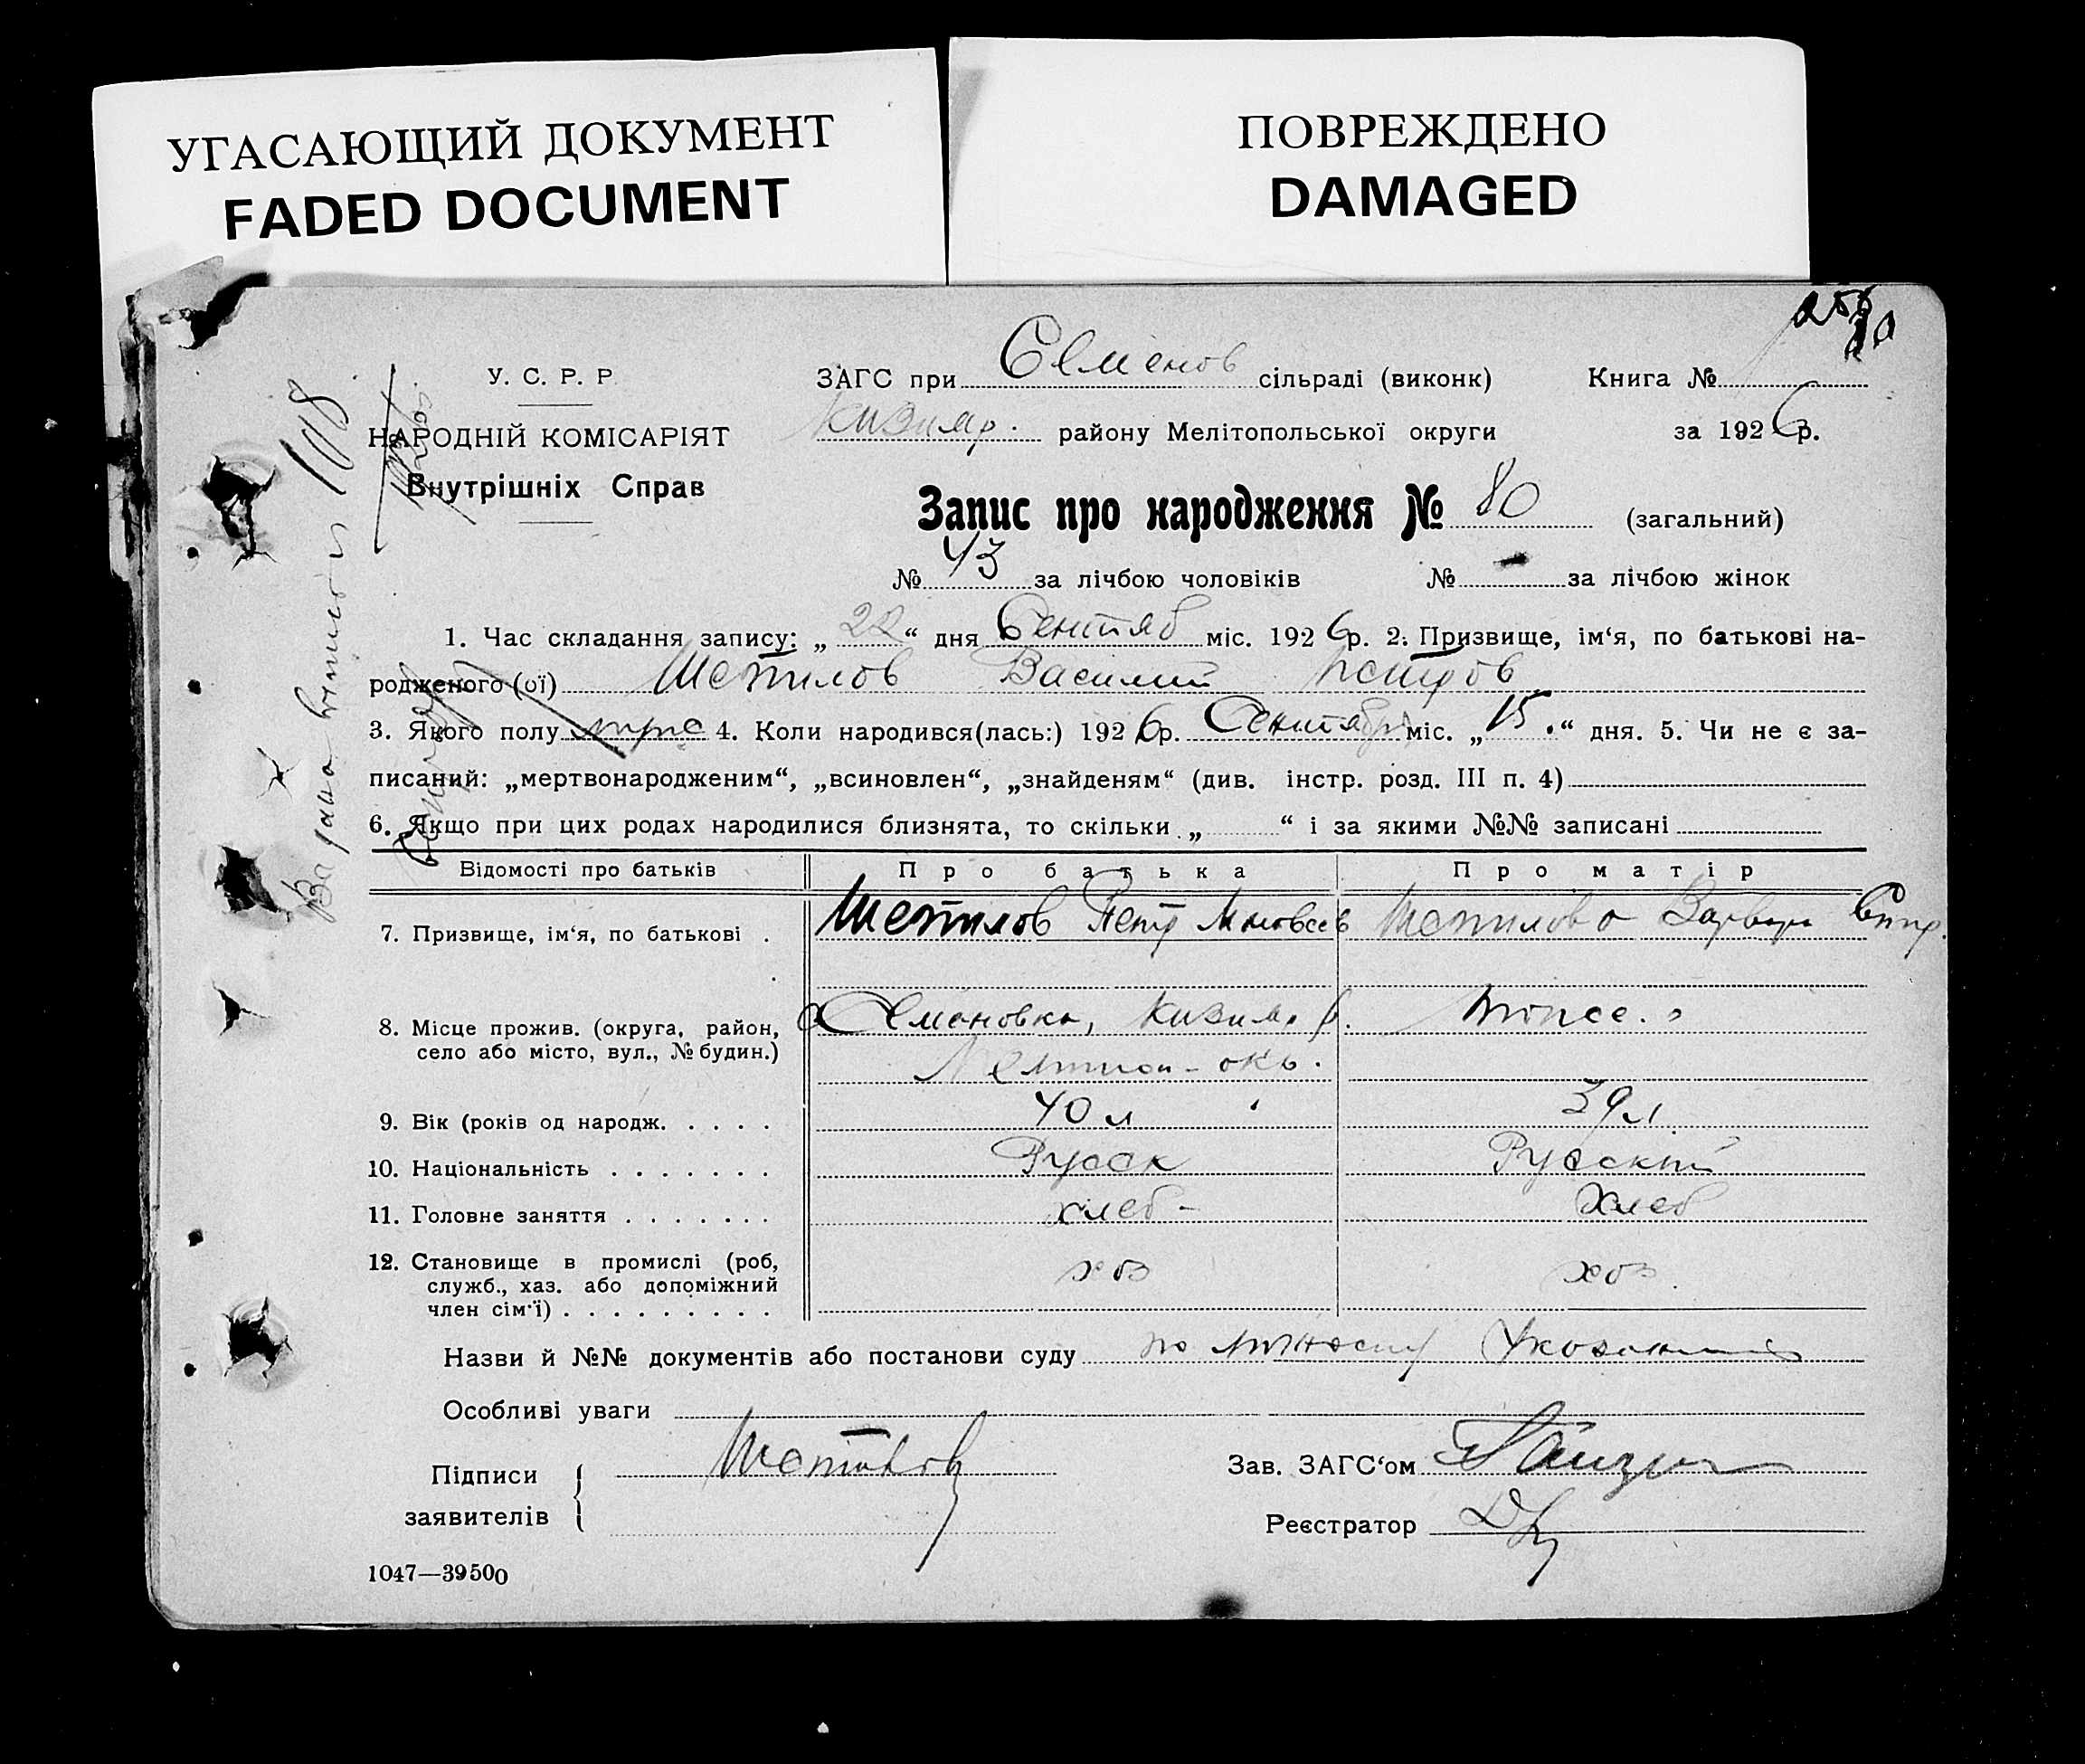 УГАСАЮЩИЙ ДОКУМЕНТ
FADED DOCUMENT
ПОВРЕЖДЕНО
DAMAGED
У. С. Р. Р
НАРОДНІЙ КОМІСАРІЯТ
Внутрішніх Справ
108
ЗАГС при Семенов сільраді (виконк) Книга №
Кизияр. району Мелітопольської округи за 1926р.
Запис про народження № 80 (загальний)
№ 43 за лічбою чоловіків № - за лічбою жінок
1. Час складання запису: „ 22 “ дня Сентяб міс. 1926р. 2. Призвище, ім‘я, по батькові на-
родженого (ої) Шетилов Василий Петров
3. Якого полу 4. Коли народився(лась:) 1926р. Сентября міс. „ 15. “ дня. 5. Чи не є за-
писаний: „мертвонародженим“, „всиновлен“, „знайденям“ (див. інстр. розд. III п. 4)
6. Якщо при цих родах народилися близнята, то скільки „ “ і за якими №№ записані
Відомості про батьків Про батька Про матір
7. Призвище, ім‘я, по батькові . Шетилов Петр Моисеев Шетилова Варвара
8. Місце прожив. (округа, район, село або місто, вул., № будин.) с Семеновка, Кизияр р. Тоже
Мелитоп - окр.
9. Вік (років од народж. . . . . 40 л 39 л.
10. Національність . . . . . . . Русск Русский
11. Головне заняття . . . . . . . хлеб - Хлеб
12. Становище в промислі (роб, служб., хаз. або допоміжний член сім‘ї) . . . . . . . . . хоз хоз.
Назви й №№ документів або постанови суду по личному
Особливі уваги
Підписи заявителів Шетилов
Зав. ЗАГС‘ом
Реєстратор
1047—39500